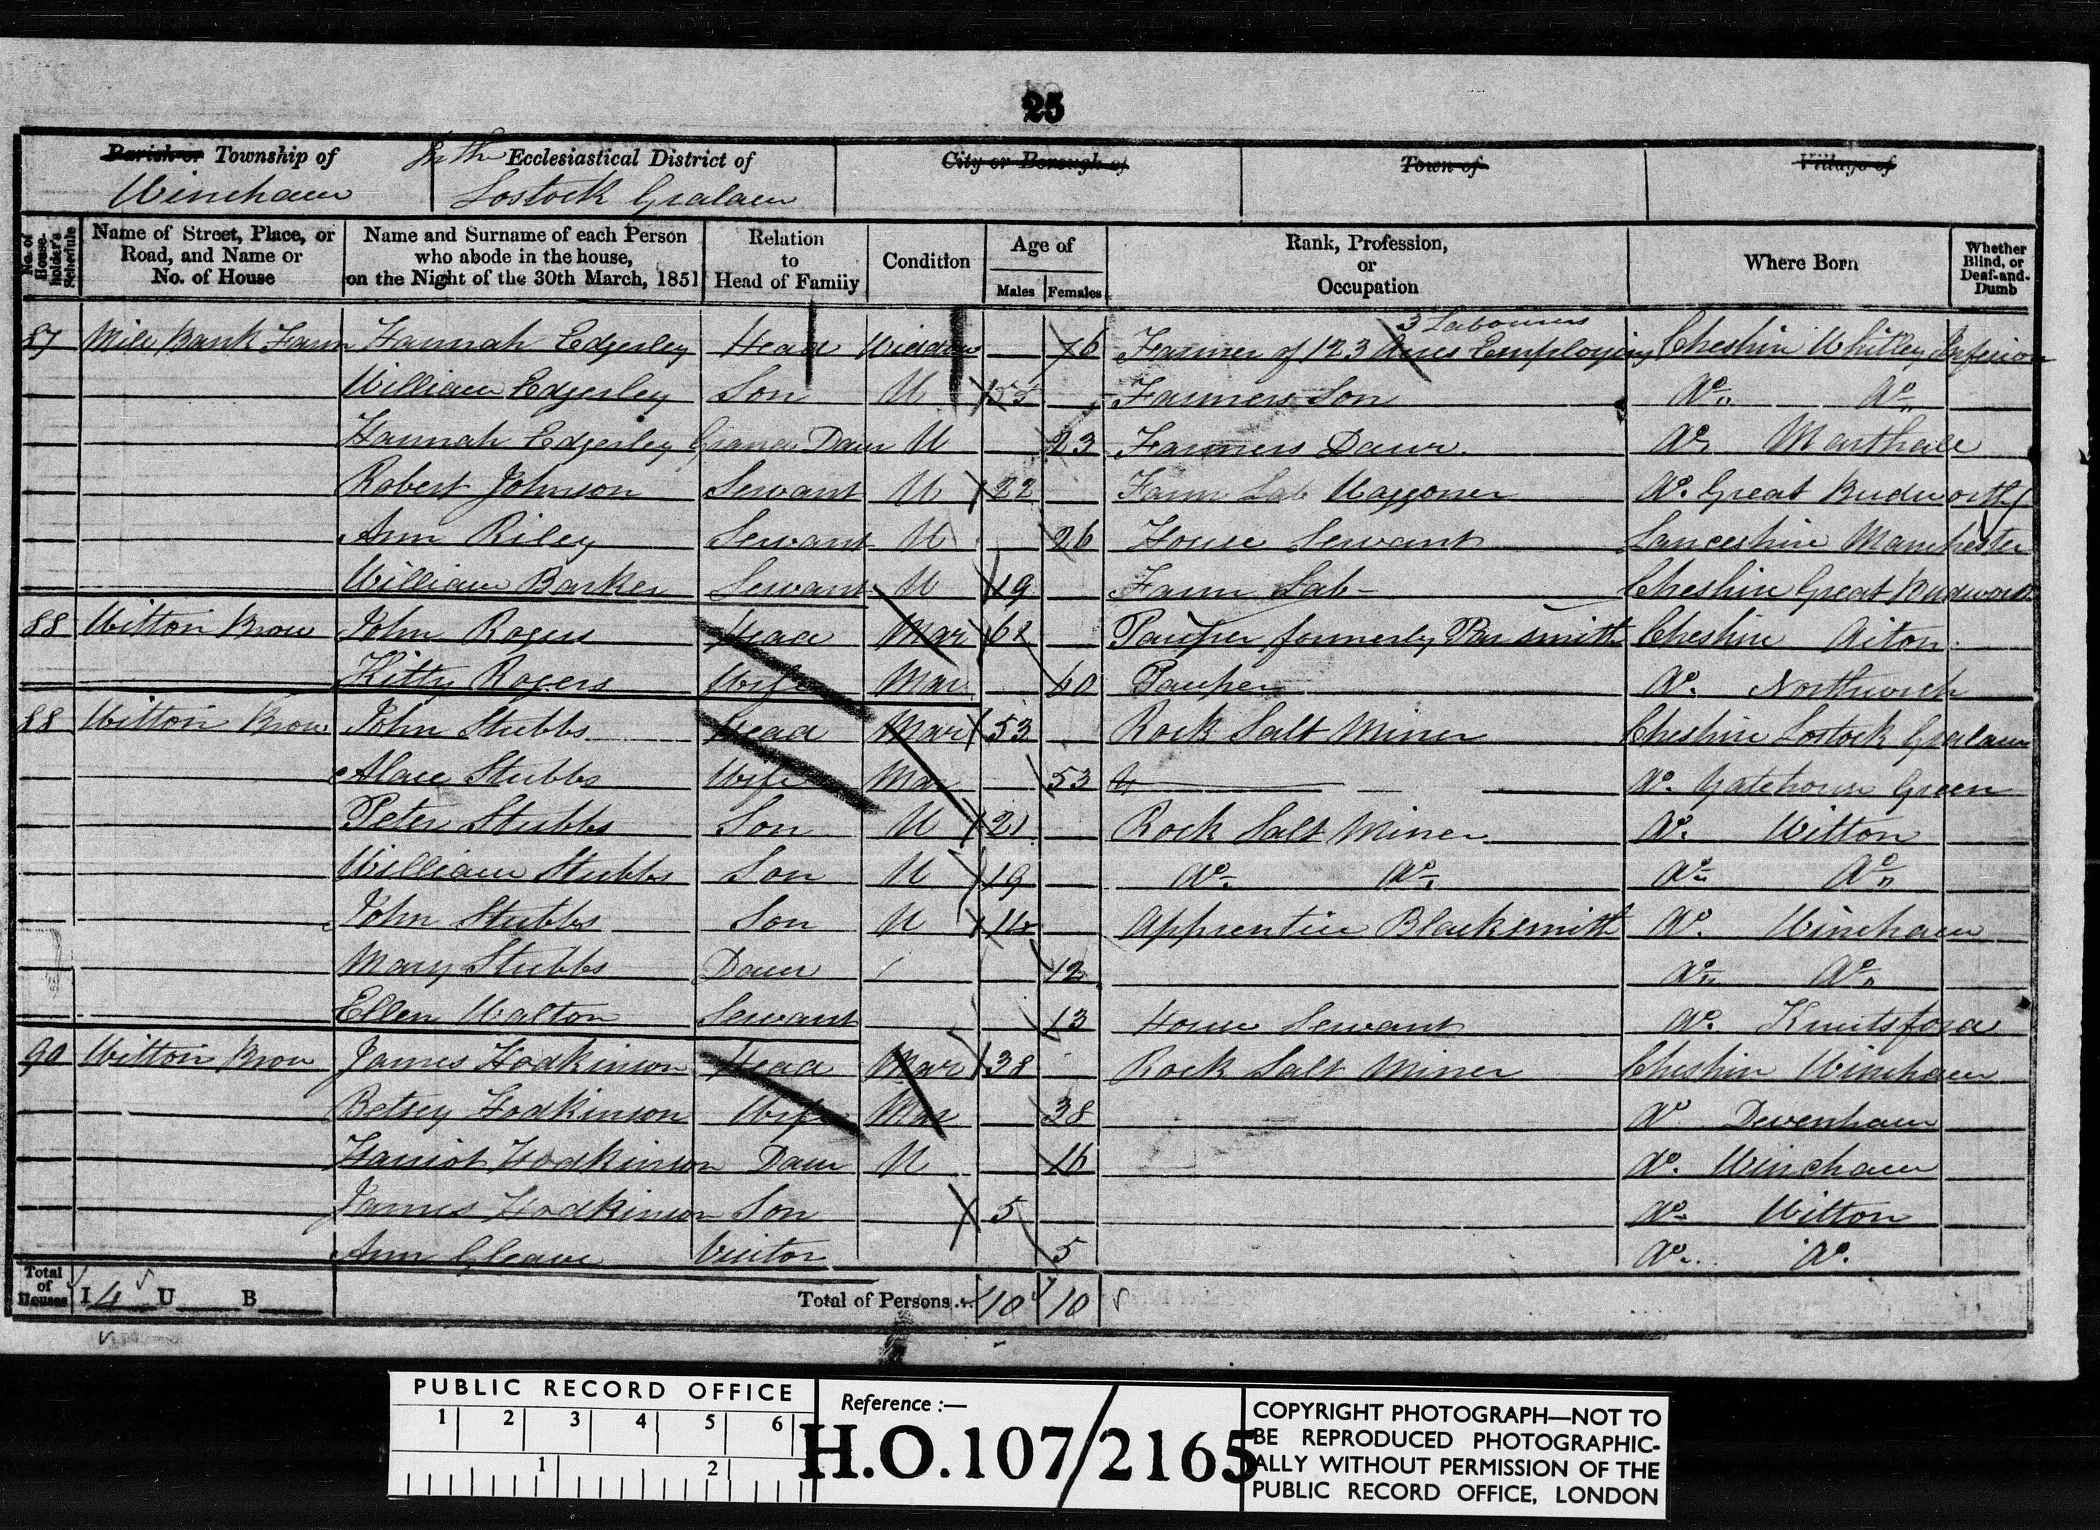 25
Parish or Township of
Wincham
In the Ecclesiastical District of
Lostock Gralam
City or Borough of
Town of
Village of
No. of House-holder's Schedule
Name of Street, Place, or Road, and Name or No. of House
Name and Surname of each Person who abode in the house, on the Night of the 30th March, 1851
Relation to Head of Family
Condition
Age of
Males Females
Rank, Profession, or Occupation
Where Born
Whether Blind, or Deaf-and-Dumb
3 Labourers
87 Mile Bank Farm Hannah Edgerley Head Widdow 76 Farmer of 123 Acres Employing Cheshire Whitley Inferion
William Edgerley Son U 55 Farmers Son Do Do
Hannah Edgerley Grand Daur U 23 Farmers Daur. Do Marthall
Robert Johnson Servant U 22 Farm Lab Waggoner Do. Great Budworth
Ann Riley Servant U 26 House Servant Lanceshire Manchester
William Barker Servant U 19 Farm Lab- Cheshire Great Budworth
88 Witton Brow John Rogers Head Mar 62 Pauper formerly Pan smith Cheshire Aston
Kitty Rogers Wife Mar 60 Pauper Do. Northwich
88 Witton Brow John Stubbs Head Mar 53 Rock Salt Miner Cheshire Lostock Gralam
Alace Stubbs Wife Mar 53 Do. Gatehouse Green
Peter Stubbs Son U 21 Rock Salt Miner Do. Witton
William Stubbs Son U 19 Do. Do. Do Do
John Stubbs Son U 14 Apprentice Blacksmith Do. Wincham
Mary Stubbs Daur 12 Do Do
Ellen Walton Servant 13 House Servant Do. Knutsford
90 Witton Brow James Hodkinson Head Mar 38 Rock Salt Miner Cheshire Wincham
Betsey Hodkinson Wife Mar 38 Do Devenham
Harriot Hodkinson Daur U 16 Do. Wincham
James Hodkinson Son 5 Do Witton
Ann Gleave Visitor 5 Do. Do.
Total of Houses I 4 U B
Total of Persons... 10 10
PUBLIC RECORD OFFICE
1 2 3 4 5 6
1 2
Reference :—
H.O.107/2165
COPYRIGHT PHOTOGRAPH—NOT TO
BE REPRODUCED PHOTOGRAPHIC-
ALLY WITHOUT PERMISSION OF THE
PUBLIC RECORD OFFICE, LONDON